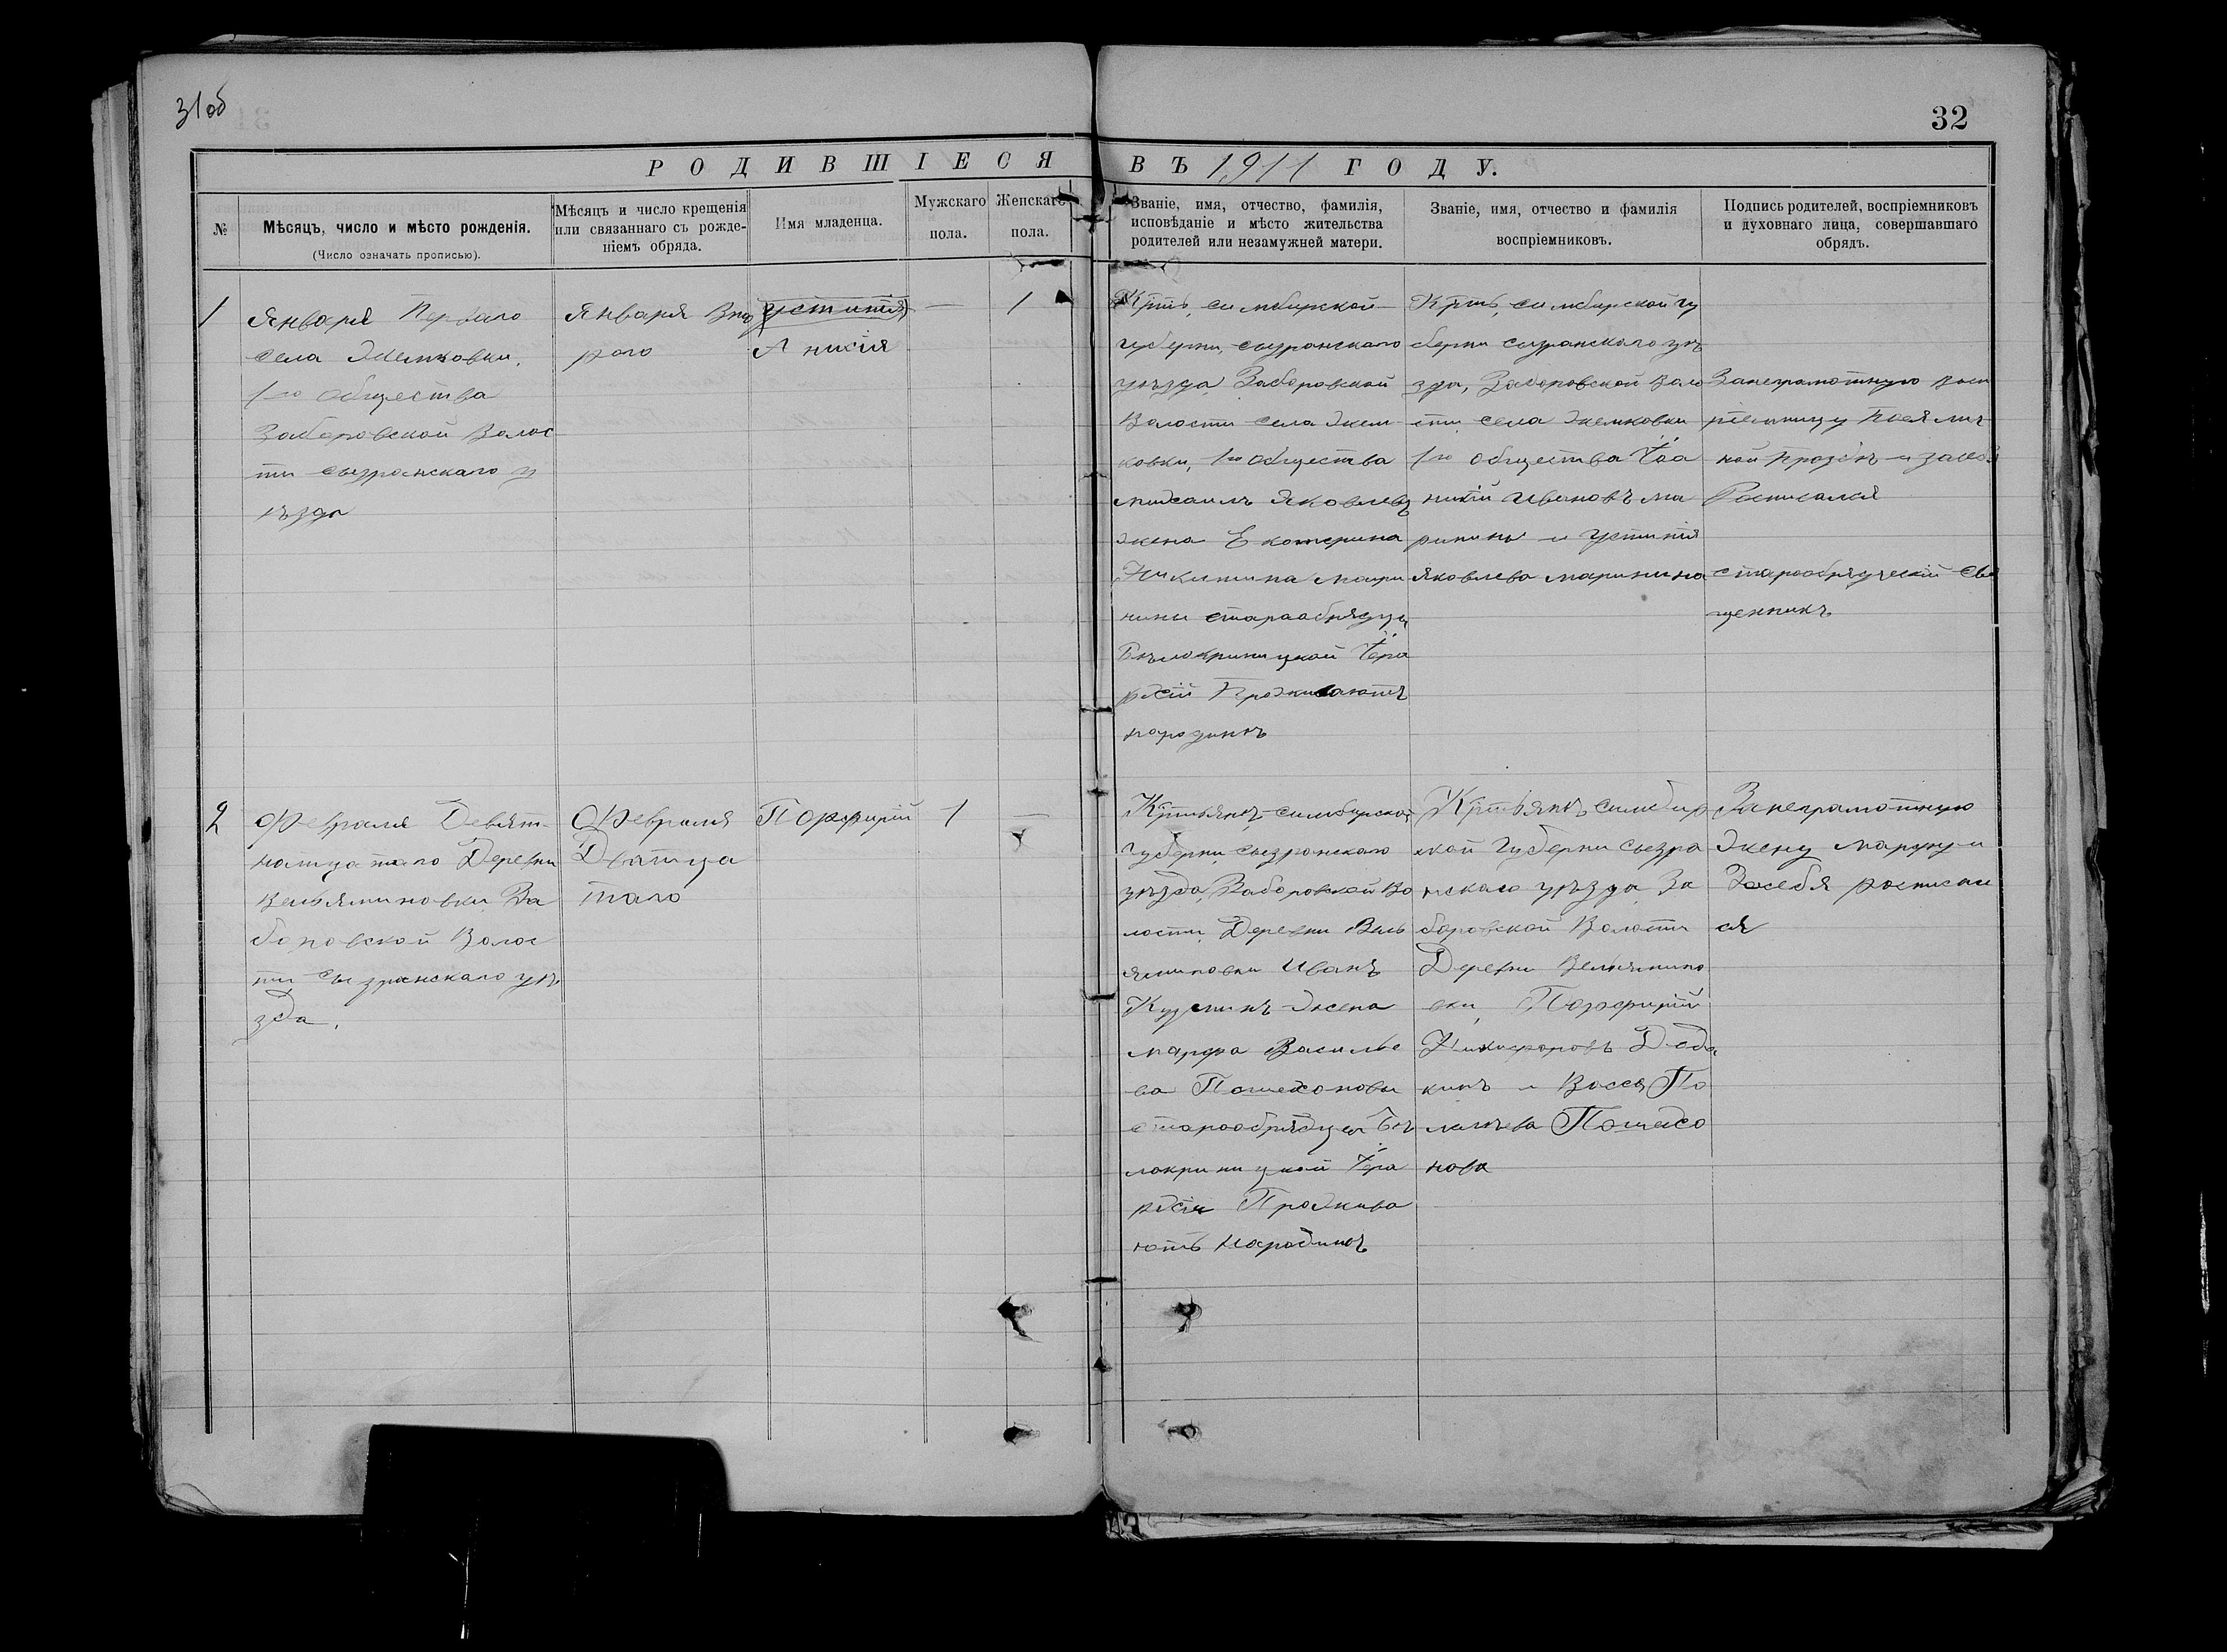 31об
32
РОДИВШІЕСЯ ВЪ 1911 ГОДУ.
№
Мѣсяцъ, число и мѣсто рожденія.
(Число означать прописью).
Мѣсяцъ и число крещенія
или связаннаго съ рожде-
ніемъ обряда.
Имя младенца.
Мужскаго
пола.
Женскаго
пола.
Званіе, имя, отчество, фамилія,
исповѣданіе и мѣсто жительства
родителей или незамужней матери.
Званіе, имя, отчество и фамилія
воспріемниковъ.
Подпись родителей, воспріемниковъ
и духовнаго лица, совершавшаго
обрядъ.
1
Января Перваго
села Жемковки,
1го общества
Заборовской Волос
ти сызранскаго у
ѣзда
Января Вто
рого
Устинія
Анисія
—
1
Крть, симбирской
губерни, сызранскаго
уѣзда, Заборовской
Волости села Жем
ковки, 1го общества
михаилъ Яковлевъ
жена Екатерина
Никитина мари
нины старообрядцы
Бѣлокриницкой Іера
рхіи Проживаютъ
народинѣ
Крть, симбирской гу
берни сызранскаго уѣ
зда, Заборовской Воло
сти села Жемковки
1го общества
Ивановъ ма
рининъ и Устинія
Яковлева маринина
Занеграмотную восп
ріемницу Поея лич
ной прозбѣ и засебя
Росписался
старообрядческій Свя
щенникъ
2
Февраля Девят
натцатаго Деревни
Веньяминовки За
боровской Волос
ти Сызранскаго уѣ
зда,
Февраля
Двятца
таго
Порфирій
1
—
Крстьянъ, симбирской
губерни сызранскаго
уѣзда, Заборовской Во
лости, Деревни Вень
яминовки Иванъ
Кузминъ жена
марфа Василье
ва Пошехоновы
старообрядцы Бѣ
локриницкой Іера
рхіи Прожива
ютъ Народинѣ
Крстьянъ симбир
ской губерни Сызра
нскаго уѣзда, За
боровской Волости
Деревни Веньямино
вки, Порфирій
Никифоровъ Деда
кинъ и Васса По
ликъева Пошехо
нова
Занеграмотную
Жену марфу и
Засебя росписал
ся